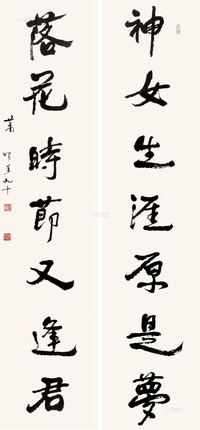 神女生涯原是夢
落花時節又逢君
蕭
年九十